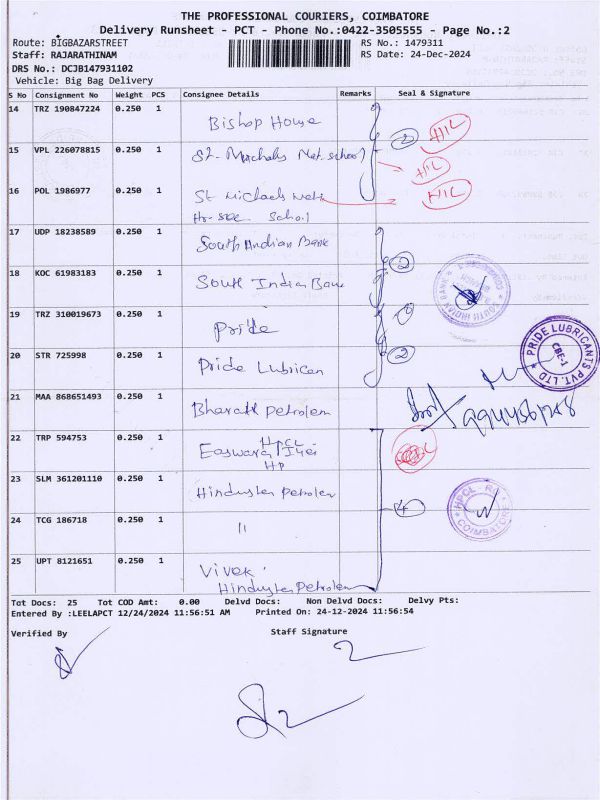 THE PROFESSIONAL COURIERS, COIMBATORE
Delivery Runsheet - PCT - Phone No.:0422-3505555 - Page No.:2
Route: BIGBAZARSTREET
RS No.: 1479311
Staff: RAJARATHINAM
RS Date: 24-Dec-2024
DRS No.: DCJB147931102
Vehicle: Big Bag Delivery
S No Consignment No Weight PCS Consignee Details Remarks Seal & Signature
14 TRZ 190847224 0.250 1 Bishop House
2 HIL
15 VPL 226078815 0.250 1 St. Michals Mat. school
HIL
16 POL 1986977 0.250 1 St Michaels
HIL
Hr. sec. School
17 UDP 18238589 0.250 1 South Indian Bank
2
18 KOC 61983183 0.250 1 South Indian Bank
SOUTH INDIAN BANK
19 TRZ 310019673 0.250 1 Pride
20 STR 725998 0.250 1 Pride Lubrican
2
PRIDE LUBRICANTS PVT. LTD
CBE-1
21 MAA 868651493 0.250 1 Bharath petrolem
22 TRP 594753 0.250 1 HPCL
Easwara
HP
23 SLM 361201110 0.250 1 Hinduster petrolem
4
HPCL - R
COIMBATORE
24 TCG 186718 0.250 1 "
25 UPT 8121651 0.250 1 Vivek
Hinduster Petrolem
Tot Docs: 25 Tot COD Amt: 0.00 Delvd Docs: Non Delvd Docs: Delvy Pts:
Entered By :LEELAPCT 12/24/2024 11:56:51 AM Printed On: 24-12-2024 11:56:54
Verified By
Staff Signature